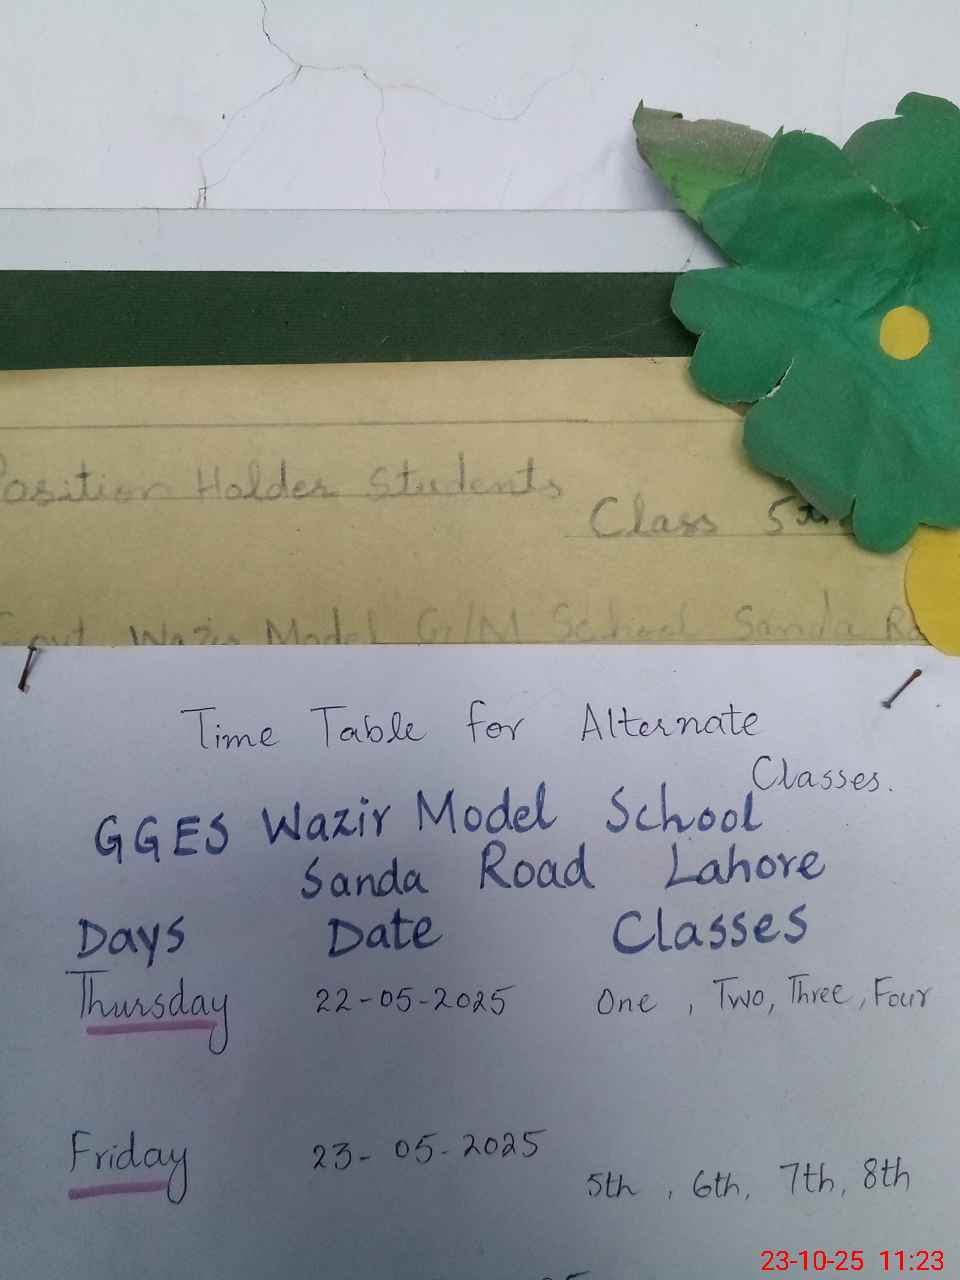 Position Holder Students
Class 5th
Govt Wazir Model G/M School Sanda
Time Table for Alternate
Classes.
GGES Wazir Model School
Sanda Road Lahore
Days Date Classes
Thursday 22-05-2025 One , Two, Three, Four
Friday 23-05-2025 5th , 6th, 7th, 8th
23-10-25 11:23